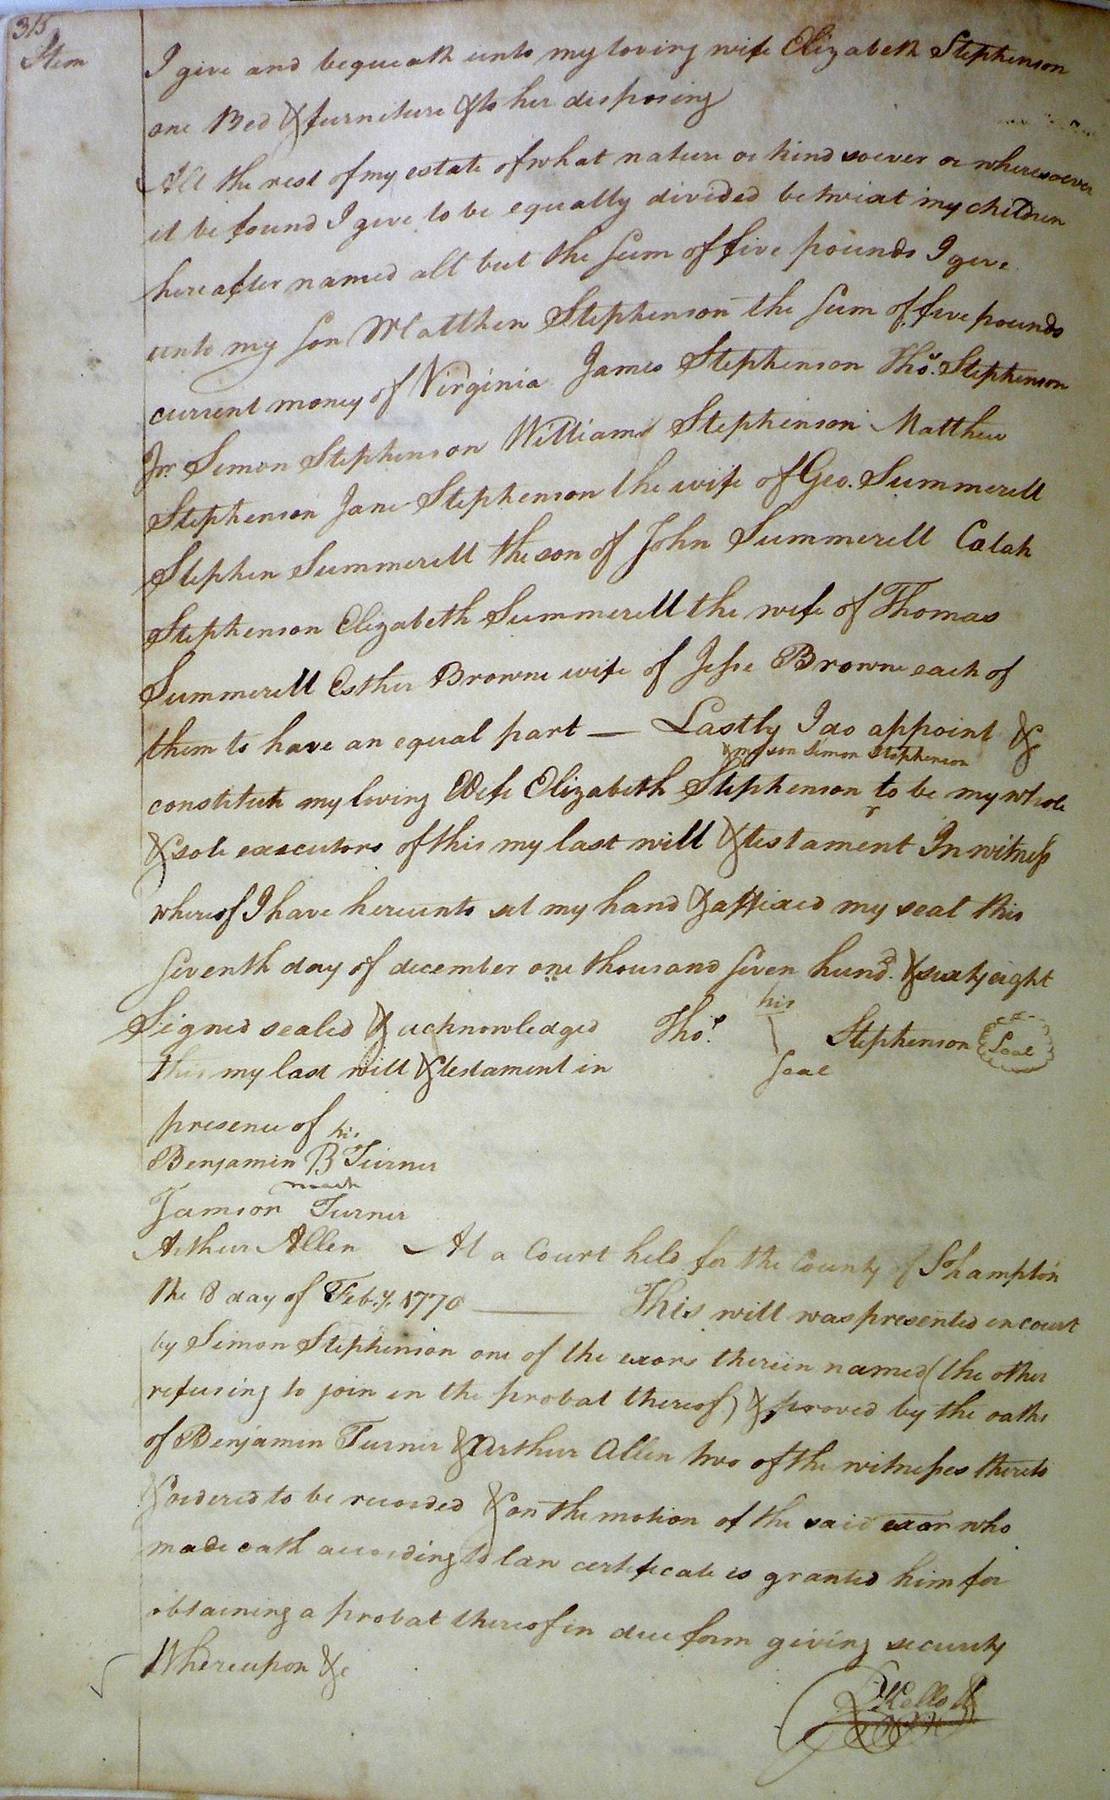 315
Item I give and bequeath unto my loving wife Elizabeth Stephenson
one Bed & furniture & to her disposing
All the rest of my estate of what nature or kind soever or wheresoever
it be found I give to be equally divided betwixt my children
hereafter named all but the sum of five pounds I give
unto my son Matthew Stephenson the sum of five pounds
current money of Virginia James Stephenson Thos. Stephenson
Jnr. Simon Stephenson Williams Stephenson Matthew
Stephenson Jane Stephenson the wife of Geo. Summerell
Stephen Summerell the son of John Summerell Calah
Stephenson Elizabeth Summerell the wife of Thomas
Summerell Esther Browne wife of Jesse Browne each of
them to have an equal part — Lastly I do appoint &
& my son Simon Stephenson
constitute my loving Wife Elizabeth Stephenson to be my whole
& sole executors of this my last will & testament In witness
whereof I have hereunto set my hand & affixed my seal this
seventh day of december one thousand seven hund.d & sixty eight
Signed sealed & acknowledged Thos. his \ Stephenson Seal
this my last will & testament in Seal
presence of his
Benjamin B Turner
mark
Jamson Turner
Arthur Allen At a Court held for the County of Shampton
the 8 day of Feb.y. 1770 —— This will was presented in court
by Simon Stephenson one of the exors therein named (the other
refusing to join in the probat thereof) & proved by the oaths
of Benjamin Turner & Arthur Allen two of the witnesses thereto
& ordered to be recorded & on the motion of the said exor who
made oath according to law certificate is granted him for
obtaining a probat thereof in due form giving security
Whereupon &c